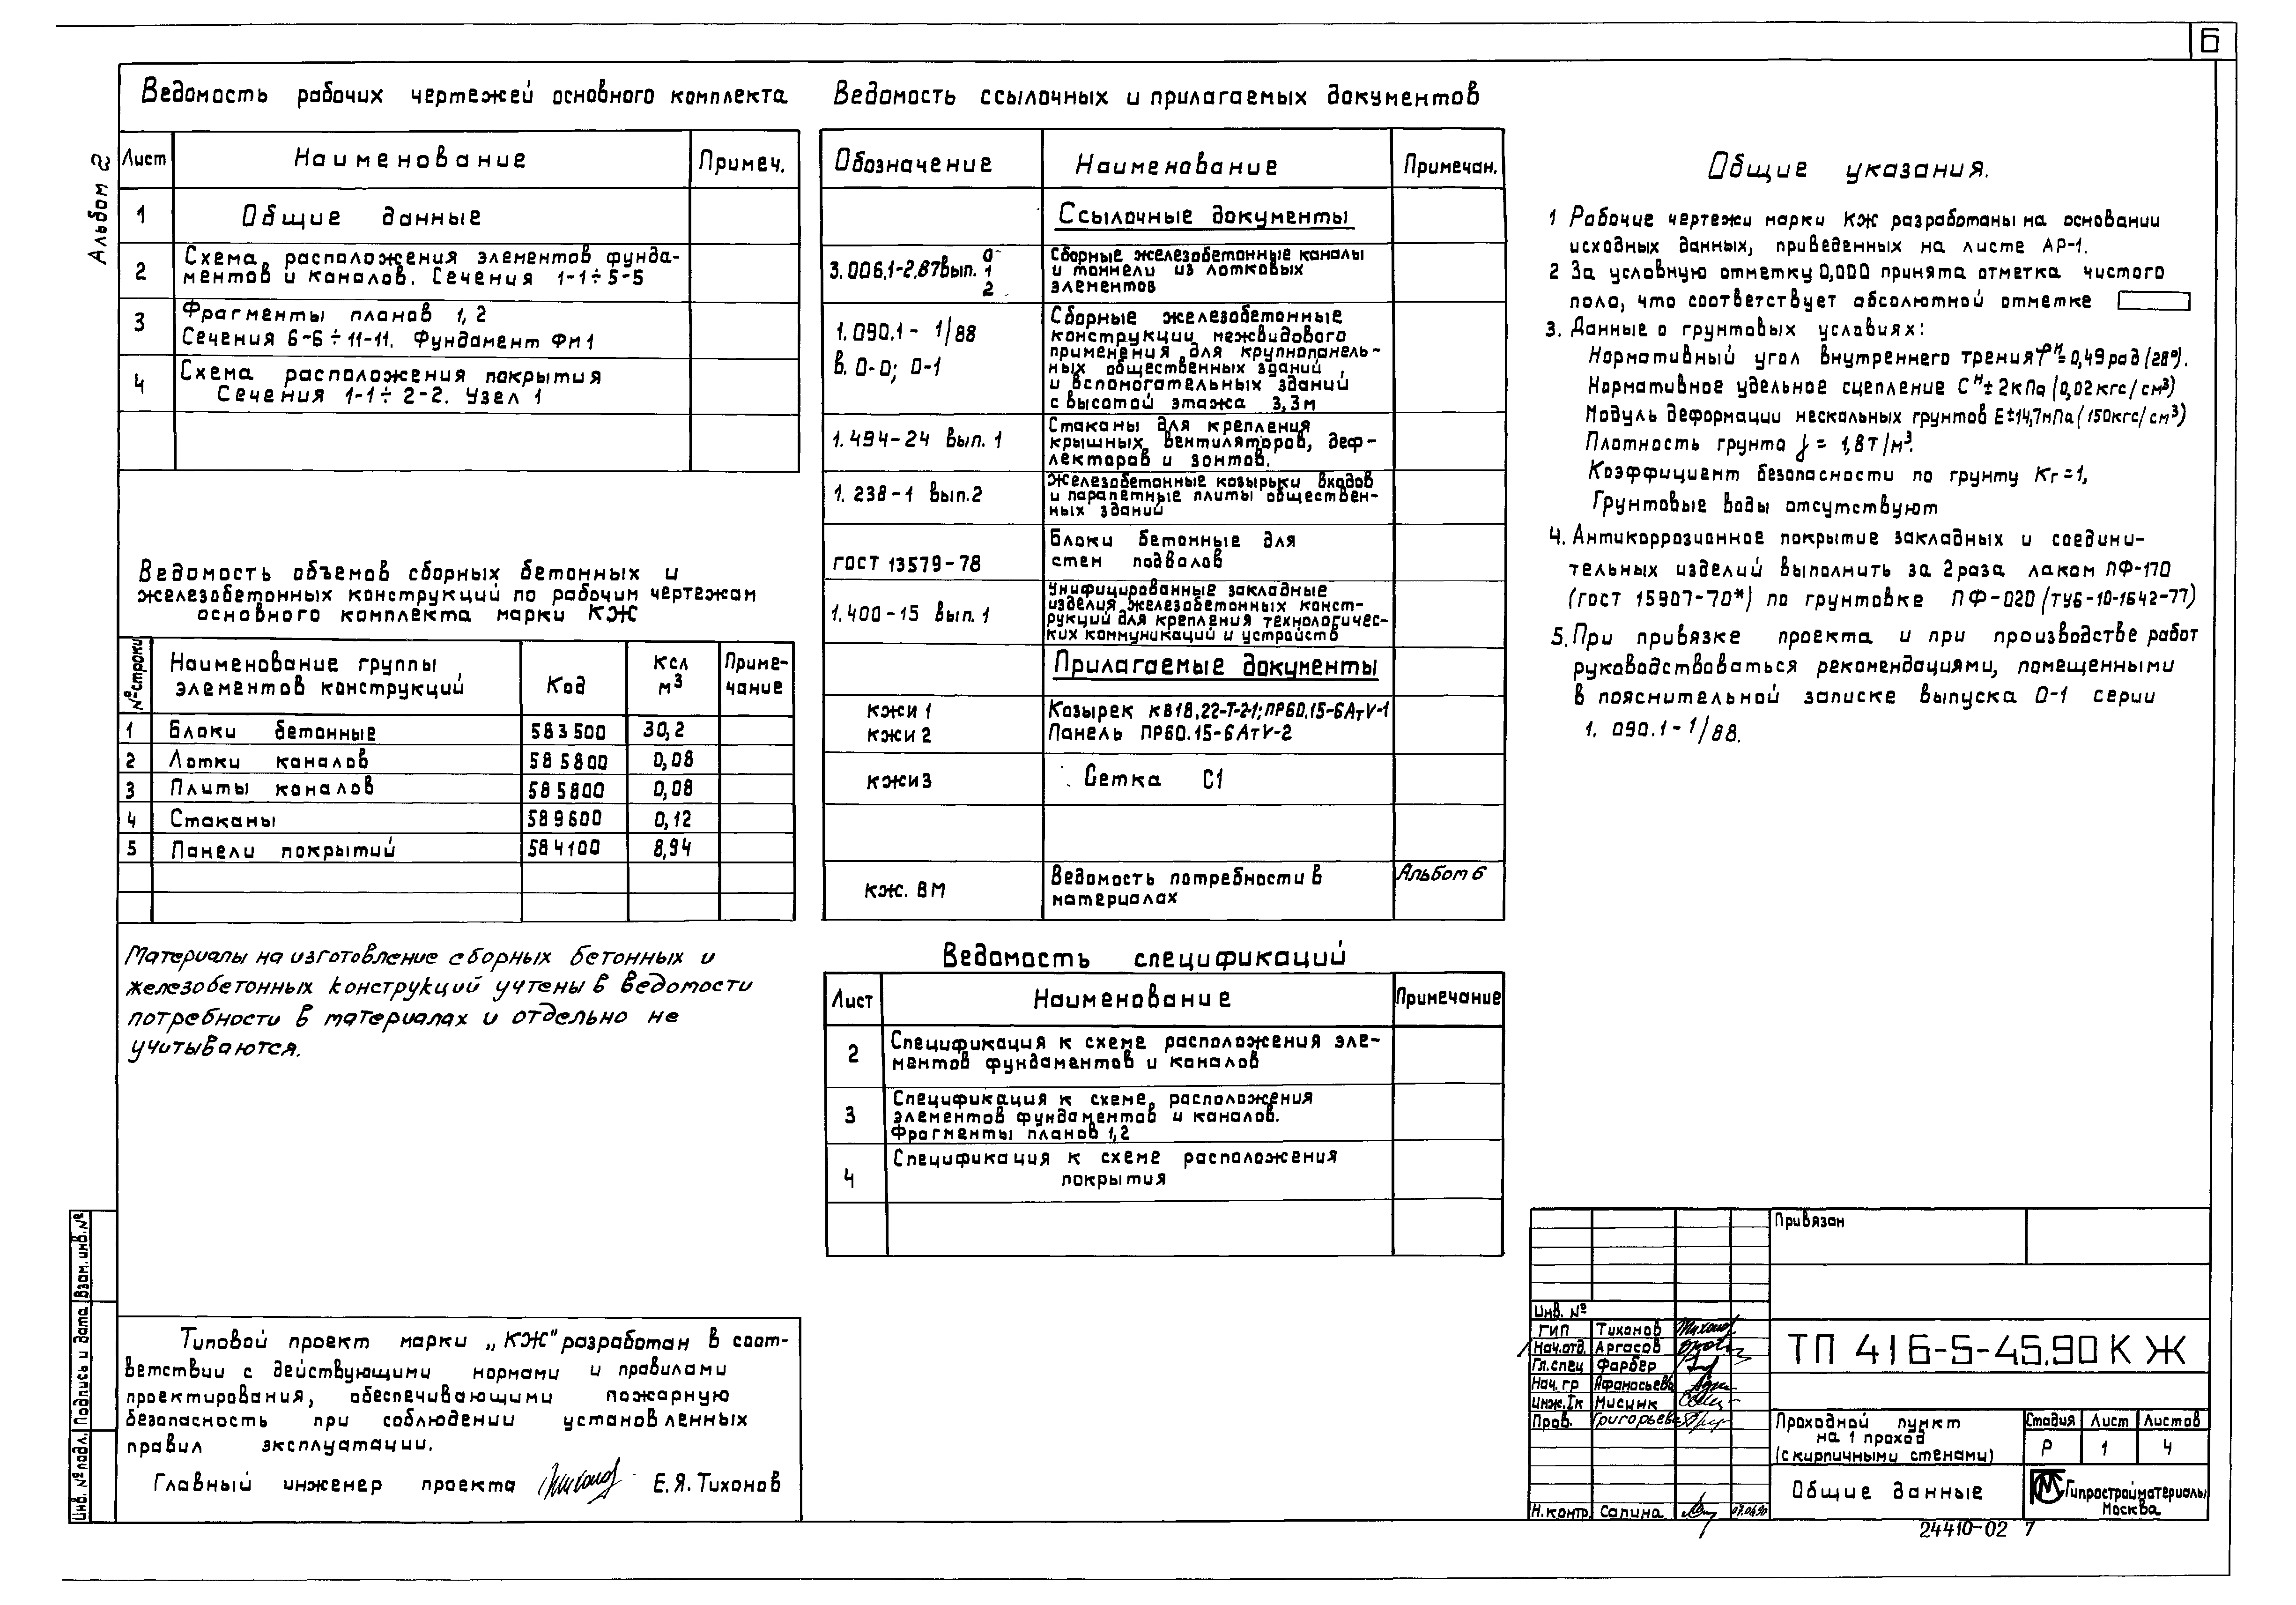 6
Альбом 2
Ведомость рабочих чертежей основного комплекта
Лист Наименование Примеч.
1 Общие данные
2 Схема расположения элементов фунда-
ментов и каналов. Сечения 1-1÷5-5
3 Фрагменты планов 1, 2
Сечения 6-6÷11-11. Фундамент Фм1
4 Схема расположения покрытия
Сечения 1-1÷2-2. Узел 1
Ведомость объемов сборных бетонных и
железобетонных конструкций по рабочим чертежам
основного комплекта марки КЖ
№ строки Наименование группы элементов конструкций Код Ксл м³ Приме-чание
1 Блоки бетонные 583500 30,2
2 Лотки каналов 585800 0,08
3 Плиты каналов 585800 0,08
4 Стаканы 589600 0,12
5 Панели покрытий 584100 8,94
Материалы на изготовление сборных бетонных и
железобетонных конструкций учтены в ведомости
потребности в материалах и отдельно не
учитываются.
Типовой проект марки „КЖ" разработан в соот-
ветствии с действующими нормами и правилами
проектирования, обеспечивающими пожарную
безопасность при соблюдении установленных
правил эксплуатации.
Главный инженер проекта Е.Я. Тихонов
Ведомость ссылочных и прилагаемых документов
Обозначение Наименование Примечан.
Ссылочные документы
3.006.1-2.87 вып. 0 1 2 Сборные железобетонные каналы
и тоннели из лотковых
элементов
1.090.1-1/88 Сборные железобетонные
конструкции межвидового
в. 0-0; 0-1 применения для крупнопанель-
ных общественных зданий
и вспомогательных зданий
с высотой этажа 3,3м
1.494-24 вып. 1 Стаканы для крепления
крышных вентиляторов, деф-
лекторов и зонтов.
1.238-1 вып.2 Железобетонные козырьки входов
и парапетные плиты обществен-
ных зданий
ГОСТ 13579-78 Блоки бетонные для
стен подвалов
1.400-15 вып. 1 Унифицированные закладные
изделия железобетонных конст-
рукций для крепления технологичес-
ких коммуникаций и устройств
Прилагаемые документы
кжи 1 Козырек кв18.22-Т-2-1; ПР60.15-6АтV-1
кжи 2 Панель ПР60.15-6АтV-2
кжи3 Сетка С1
кж. ВМ Ведомость потребности в Альбом 6
материалах
Ведомость спецификаций
Лист Наименование Примечание
2 Спецификация к схеме расположения эле-
ментов фундаментов и каналов
3 Спецификация к схеме расположения
элементов фундаментов и каналов.
Фрагменты планов 1,2
4 Спецификация к схеме расположения
покрытия
Общие указания.
1 Рабочие чертежи марки КЖ разработаны на основании
исходных данных, приведенных на листе АР-1.
2 За условную отметку 0,000 принята отметка чистого
пола, что соответствует абсолютной отметке
3. Данные о грунтовых условиях:
Нормативный угол внутреннего трения φᴴ=0,49рад/(28°).
Нормативное удельное сцепление Сᴴ=2кПа (0,02кгс/см³)
Модуль деформации нескальных грунтов Е=14,7мПа (150кгс/см³)
Плотность грунта γ = 1,8т/м³.
Коэффициент безопасности по грунту Кг=1,
Грунтовые воды отсутствуют
4. Антикоррозионное покрытие закладных и соедини-
тельных изделий выполнить за 2 раза лаком ПФ-170
(гост 15907-70*) по грунтовке ПФ-020 (ту6-10-1642-77)
5. При привязке проекта и при производстве работ
руководствоваться рекомендациями, помещенными
в пояснительной записке выпуска 0-1 серии
1.090.1-1/88.
Инв. № подл. Подпись и дата Взам. инв. №
Привязан
Инв. №
ГИП Тихонов
Нач.отд. Аргасов
Гл.спец Фарбер
Нач. гр Афанасьева
Инж.Iк Мисник
Пров. Григорьева
Н.контр. Сапина 07.04.90
ТП 416-5-45.90 КЖ
Проходной пункт
на 1 проход
(с кирпичными стенами)
Стадия Лист Листов
Р 1 4
Общие данные
Гипростройматериалы
Москва
24410-02 7